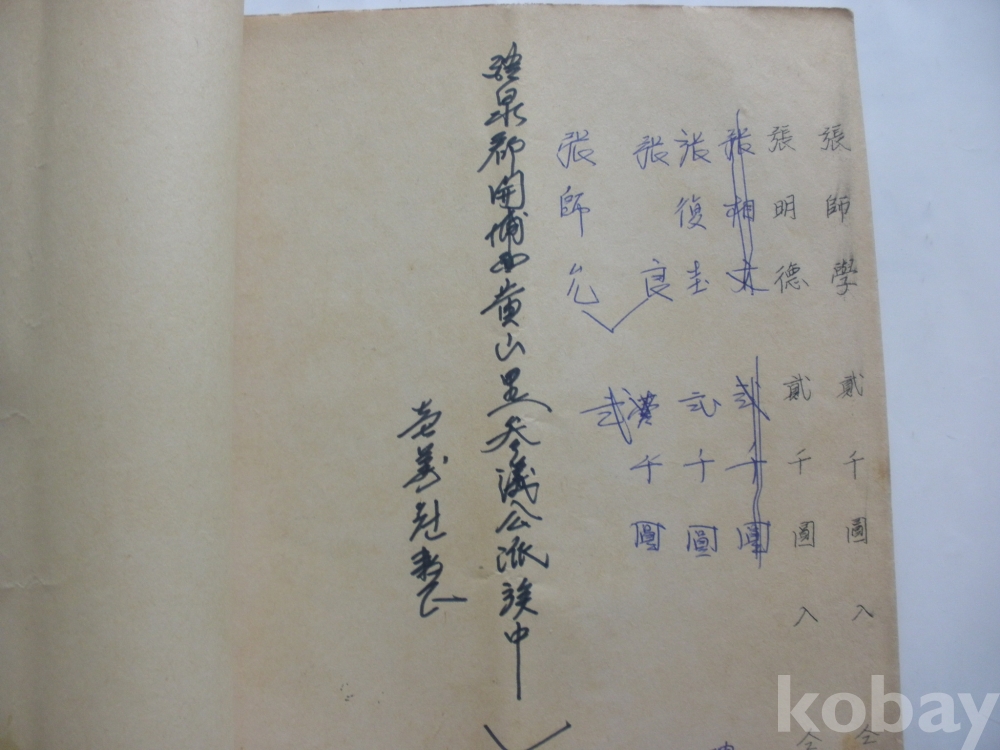 張師學 貳千圓 入 仝
張明德 貳千圓 入 仝
張相文 貳千圓
張復圭 貳千圓
張 良 貳千圓
張師允
醴泉郡開浦面黃山里參議公派族中
壹萬
kobay